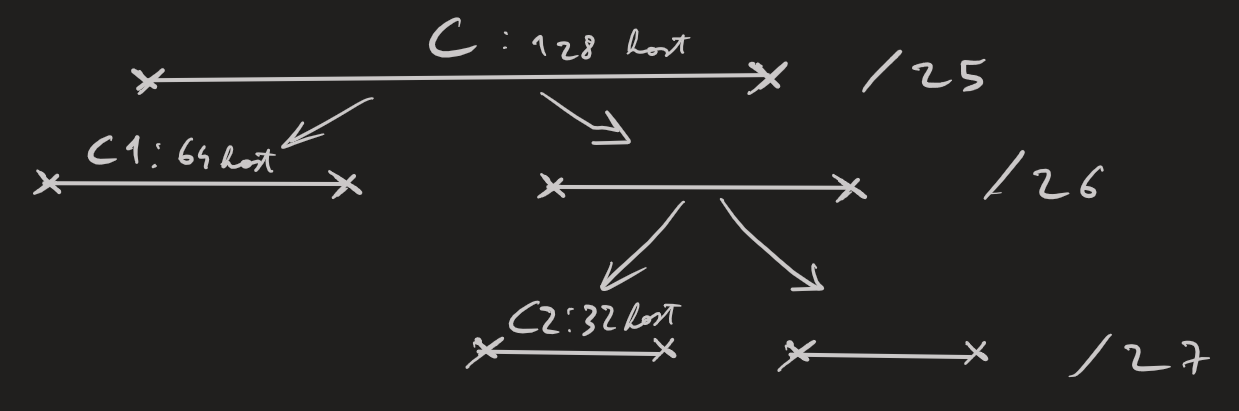 C : 128 host
/25
C1: 64 host
/26
C2: 32 host
/27